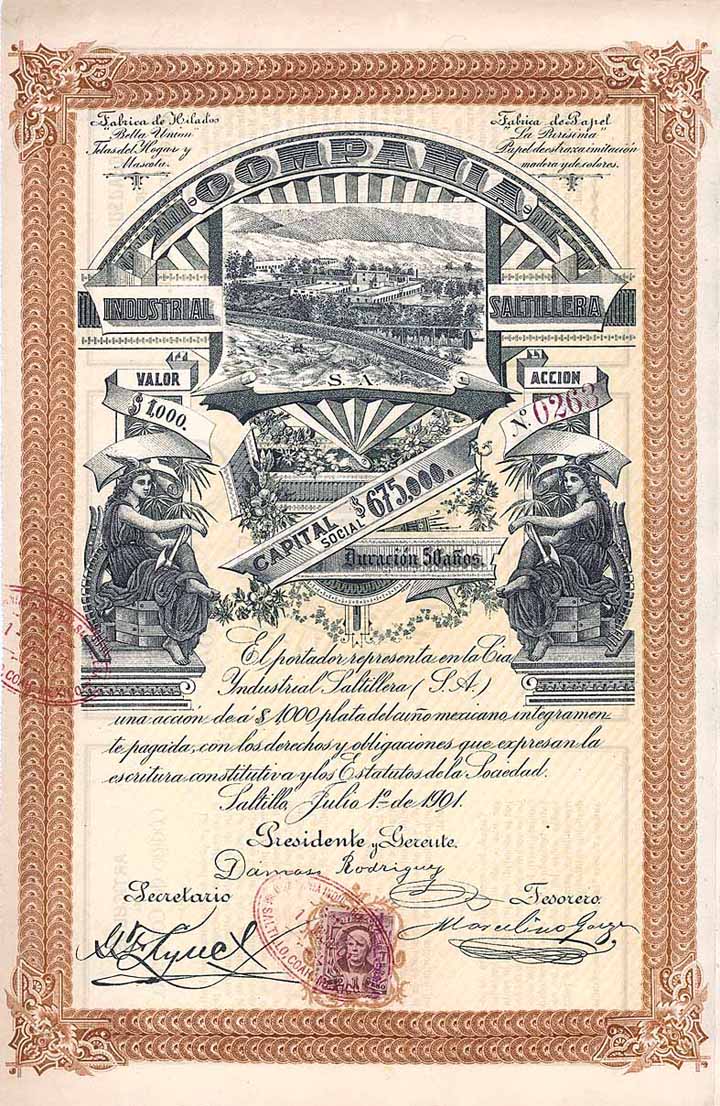 Fabrica de Hilados
"Bella Union"
Telas del Hogar y
Mascota.
Fabrica de Papel
"La Purisima"
Papel de estraza imitación
madera y de colores.
COMPAÑIA
INDUSTRIAL
SALTILLERA
S. A.
VALOR
$ 1000.
ACCION
No. 0263
CAPITAL SOCIAL $ 675,000.
Duración 50 años.
El portador representa en la Cia
Industrial Saltillera (S.A.)
una acción de á $ 1000 plata del cuño mexicano integramen-
te pagada, con los derechos y obligaciones que expresan la
escritura constitutiva y los Estatutos de la Sociedad.
Saltillo, Julio 1º de 1901.
Presidente y Gerente.
Damaso Rodriguez
Secretario
Tesorero.
Marcelino Garza